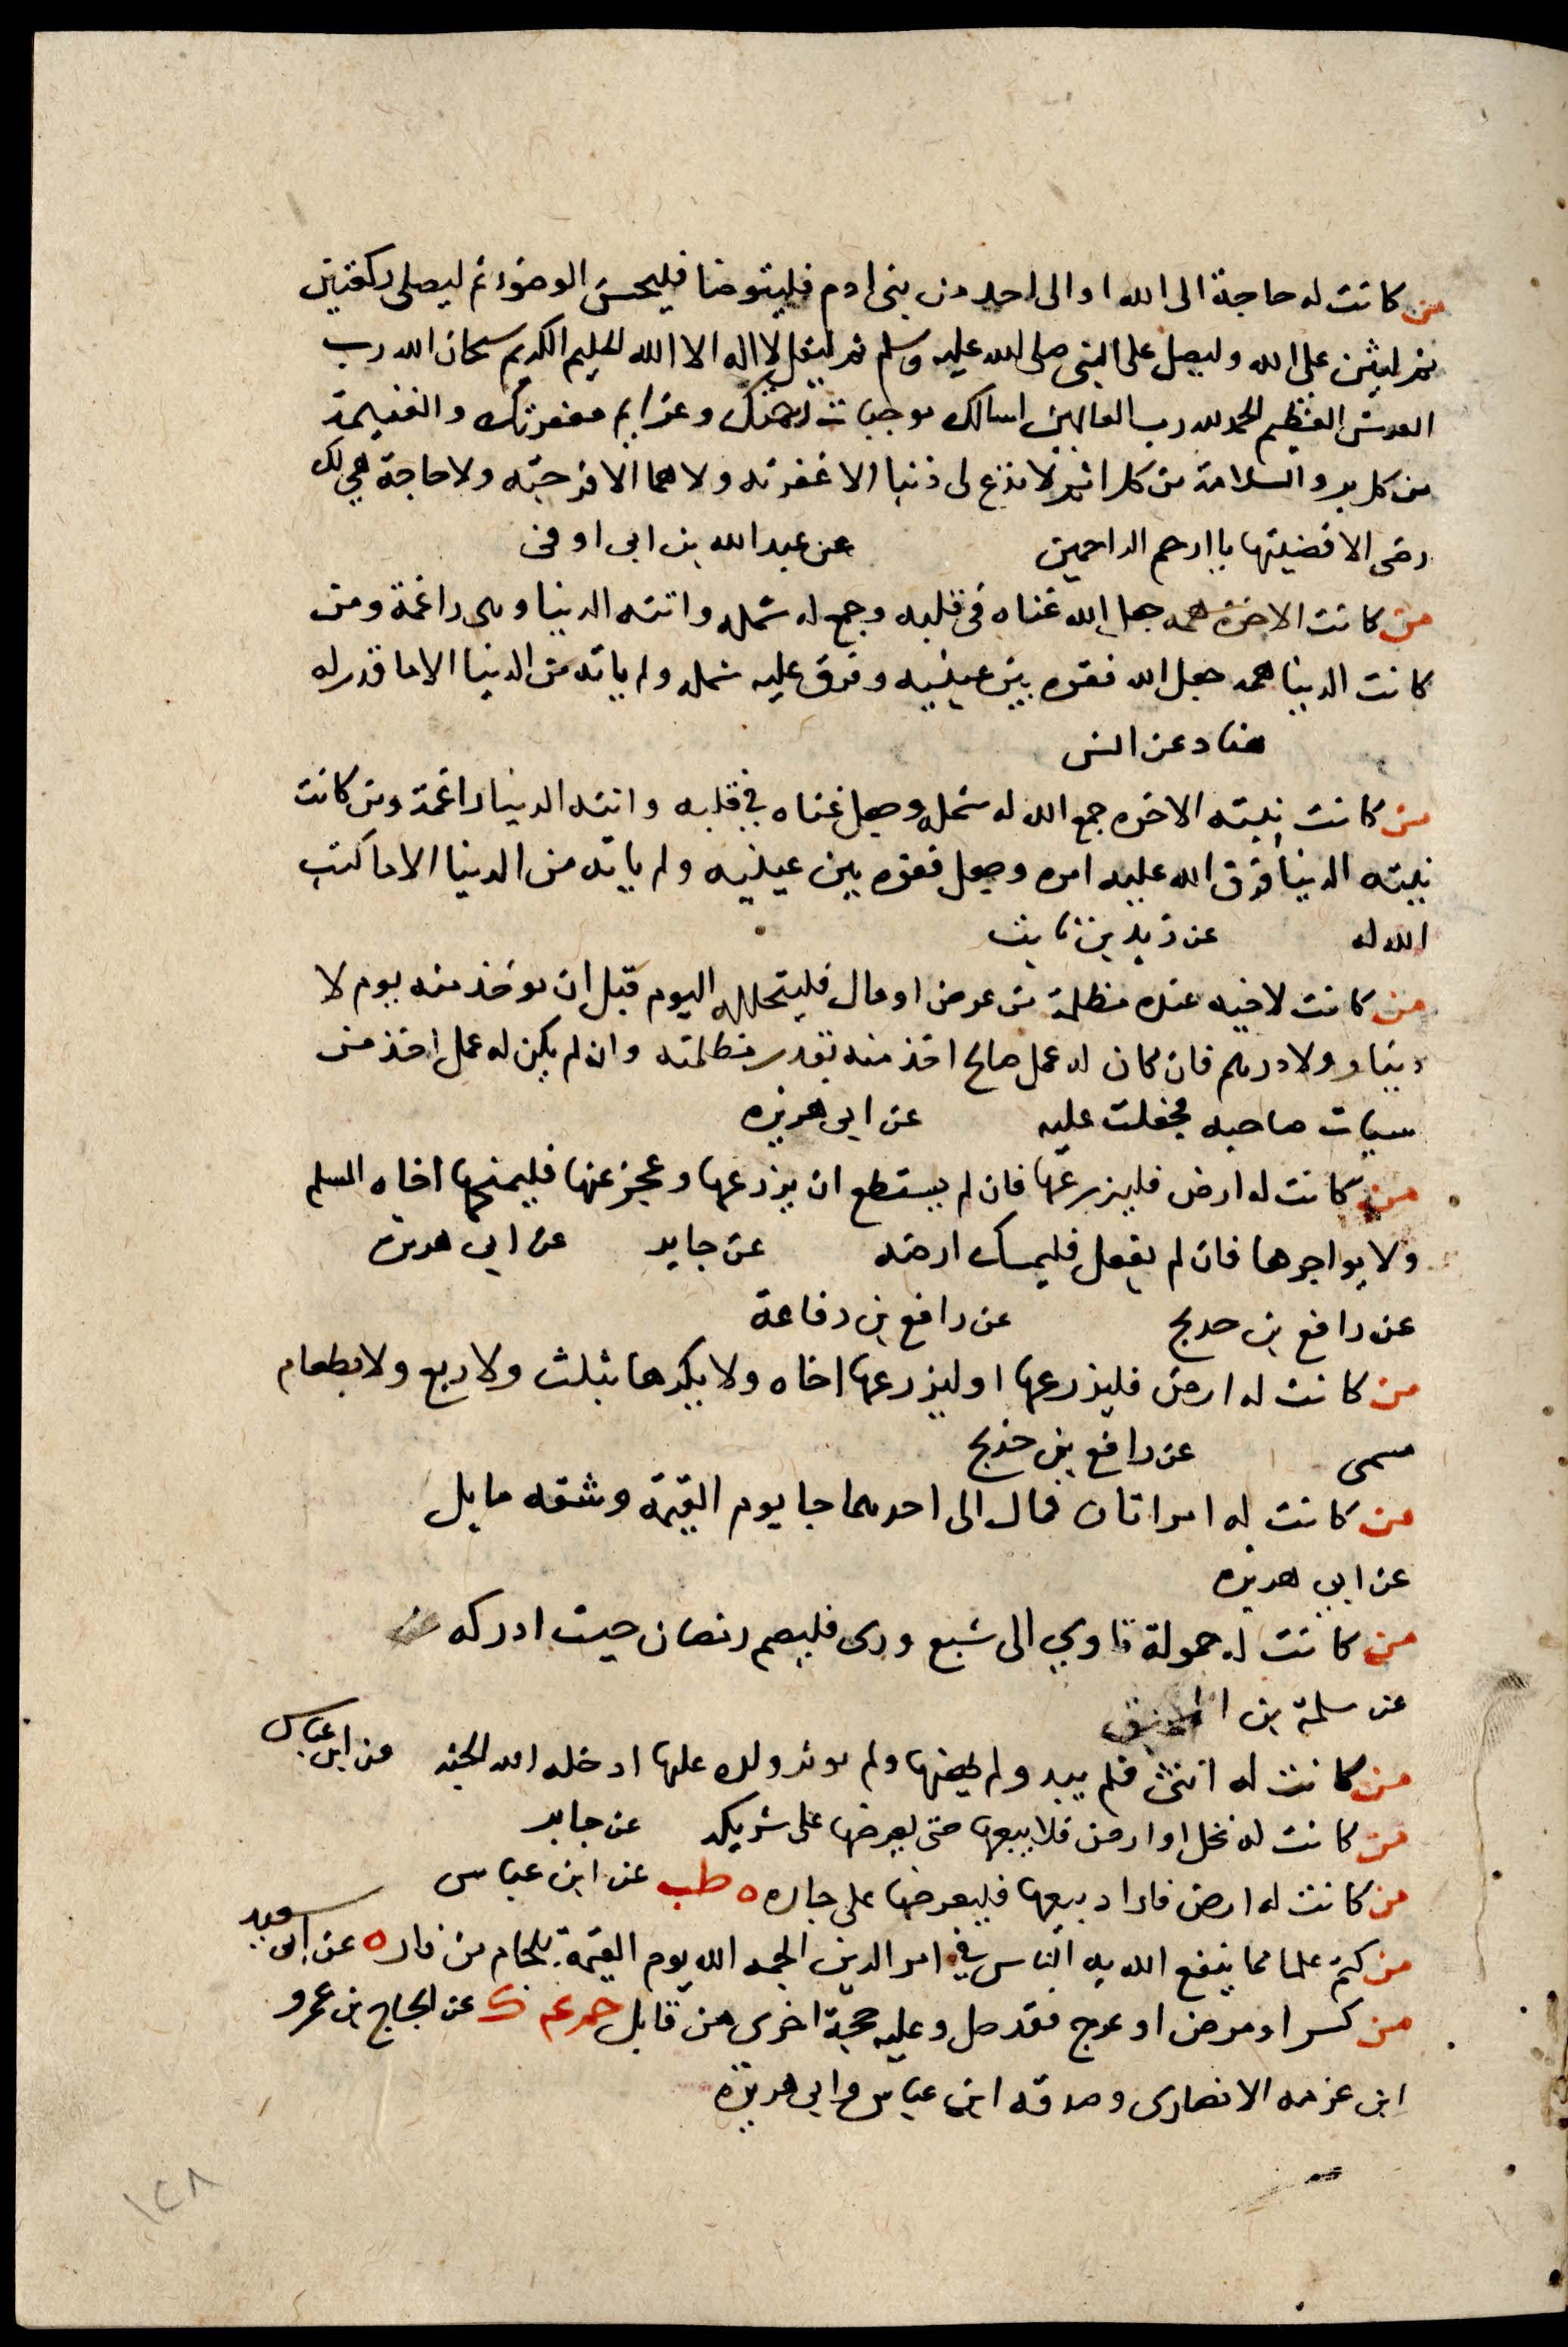 من كانت له حاجة الى الله او الى احد من بنى ادم فليتوضا فليحسن الوضوء ثم ليصلى ركعتين
ثم ليثن على الله وليصل على النبى صلى الله عليه وسلم ثم ليقل لا اله الا الله الحليم الكريم سبحان الله رب
العرش العظيم الحمد لله رب العالمين اسالك موجبات رحمتك وعزايم مغفرتك والغنيمة
من كل بر والسلامة من كل اثم لا تدع لى ذنبا الا غفرته ولا هما الا فرجته ولا حاجة هى لك
رضى الا قضيتها يا ارحم الراحمين عن عبد الله بن ابى اوفى
من كانت الاخرة همه جعل الله غناه فى قلبه وجمع له شمله واتته الدنيا وهى راغمة ومن
كانت الدنيا همه جعل الله فقره بين عينيه وفرق عليه شمله ولم ياته من الدنيا الا ما قدر له
هناد عن انس
من كانت نيته الاخره جمع الله له شمله وجعل غناه في قلبه واتته الدنيا راغمة ومن كانت
نيته الدنيا فرق الله عليه امره وجعل فقره بين عينيه ولم ياته من الدنيا الا ما كتب
الله له عن زيد بن ثابت
من كانت لاخيه عنده مظلمة من عرض او مال فليتحلله اليوم قبل ان يوخذ منه يوم لا
دينار ولا درهم فان كان له عمل صالح اخذ منه بقدر مظلمته وان لم يكن له عمل اخذ من
سيات صاحبه فجعلت عليه عن ابى هريره
من كانت له ارض فليزرعها فان لم يستطع ان يزرعها وعجز عنها فليمنحها اخاه المسلم
ولا يواجرها فان لم يفعل فليمسك ارضه عن جابر عن ابى هريره
عن رافع بن خديج عن رافع بن رفاعة
من كانت له ارض فليزرعها او ليزرعها اخاه ولا يكرها بثلث ولا ربع ولا بطعام
مسمى عن رافع بن خديج
من كانت له امراتان فمال الى احديهما جا يوم القيمة وشقه مايل
عن ابى هريره
من كانت له حمولة تاوي الى شبع ورى فليصم رمضان حيث ادركه
عن سلمة بن المحبق
من كانت له انثى فلم يبد ولم يهنها ولم يوثر ولده عليها ادخله الله الجنة عن ابن عباس
من كانت له نخل او ارض فلا يبيعها حتى يعرضها على شريكه عن جابر
من كانت له ارض فاراد بيعها فليعرضها على جاره ه طب عن ابن عباس
من كتم علما مما ينفع الله به الناس في امر الدين الجمه الله يوم القيمة بلجام من نار ه عن ابى سعيد
من كسر او مرض او عرج فقد حل وعليه حجة اخرى من قابل حم عم ك عن الحجاج بن عمرو
ابن غزيه الانصارى وصدقه ابن عباس وابى هريرة
١٢٨